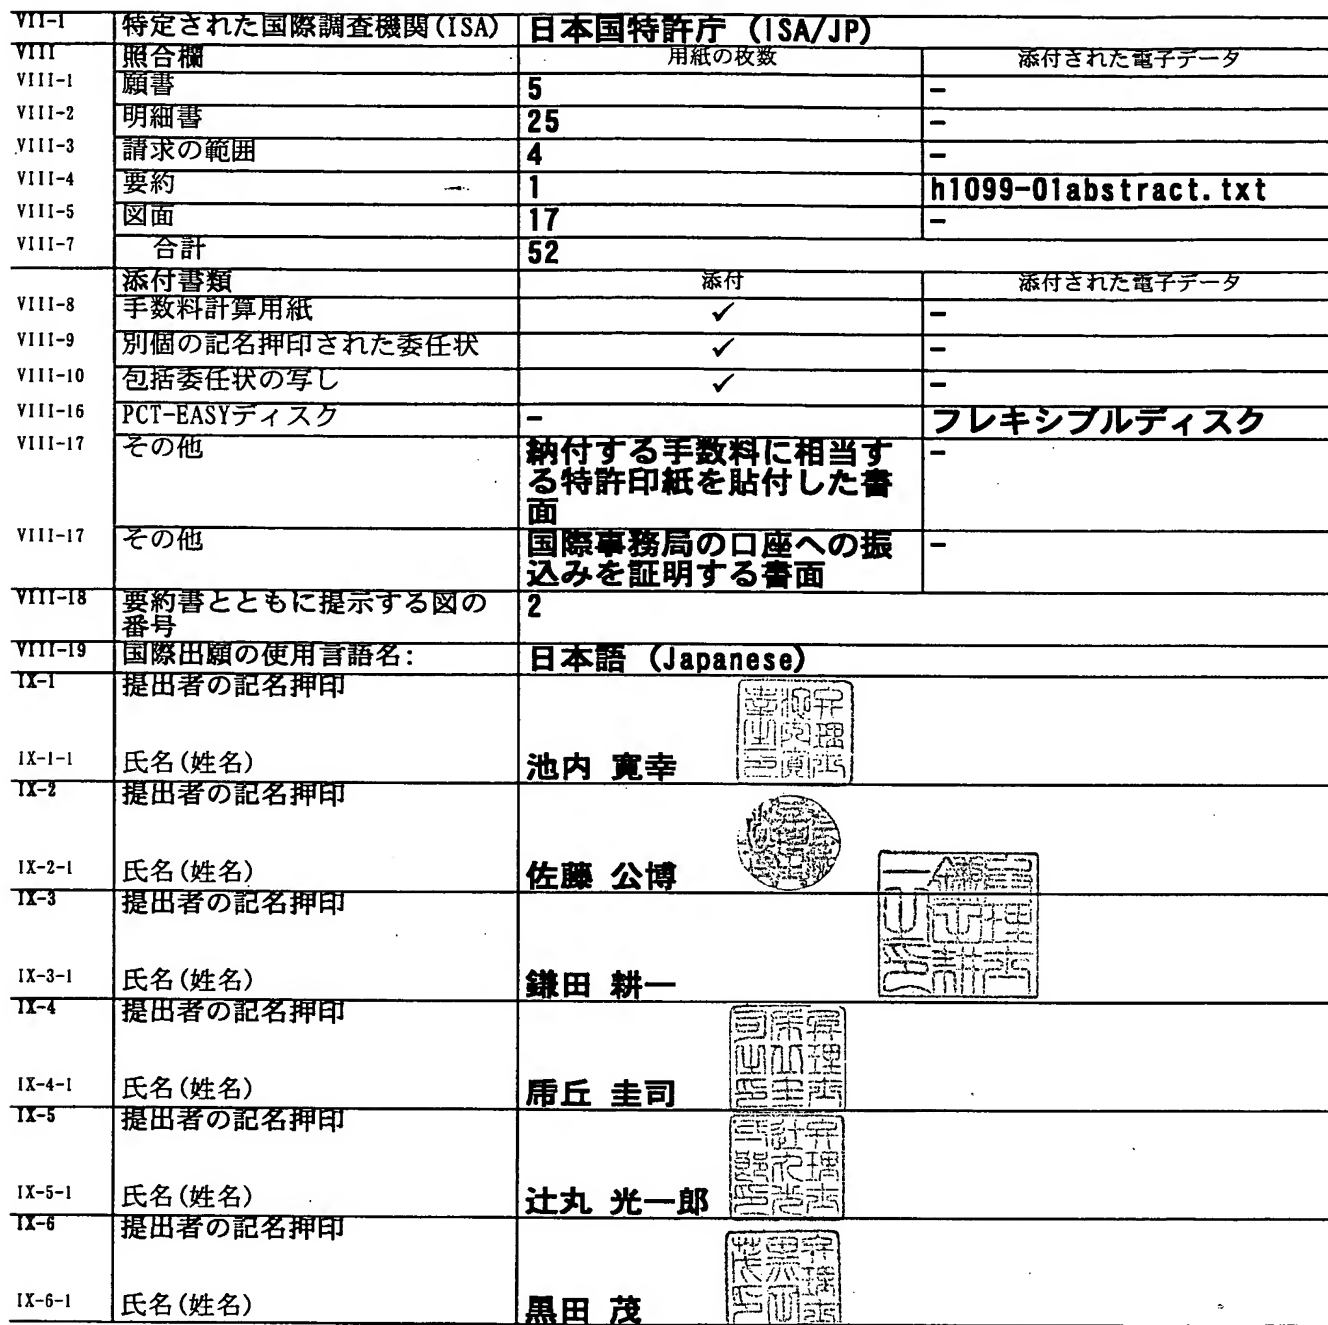 VII-1 特定された国際調査機関(ISA) 日本国特許庁 (ISA/JP)
VIII 照合欄 用紙の枚数 添付された電子データ
VIII-1 願書 5 -
VIII-2 明細書 25 -
VIII-3 請求の範囲 4 -
VIII-4 要約 1 h1099-01abstract.txt
VIII-5 図面 17 -
VIII-7 合計 52
添付書類 添付 添付された電子データ
VIII-8 手数料計算用紙 ✓ -
VIII-9 別個の記名押印された委任状 ✓ -
VIII-10 包括委任状の写し ✓ -
VIII-16 PCT-EASYディスク - フレキシブルディスク
VIII-17 その他 納付する手数料に相当す -
る特許印紙を貼付した書
面
VIII-17 その他 国際事務局の口座への振 -
込みを証明する書面
VIII-18 要約書とともに提示する図の 2
番号
VIII-19 国際出願の使用言語名: 日本語 (Japanese)
IX-1 提出者の記名押印
IX-1-1 氏名(姓名) 池内 寛幸
IX-2 提出者の記名押印
IX-2-1 氏名(姓名) 佐藤 公博
IX-3 提出者の記名押印
IX-3-1 氏名(姓名) 鎌田 耕一
IX-4 提出者の記名押印
IX-4-1 氏名(姓名) 乕丘 圭司
IX-5 提出者の記名押印
IX-5-1 氏名(姓名) 辻丸 光一郎
IX-6 提出者の記名押印
IX-6-1 氏名(姓名) 黒田 茂